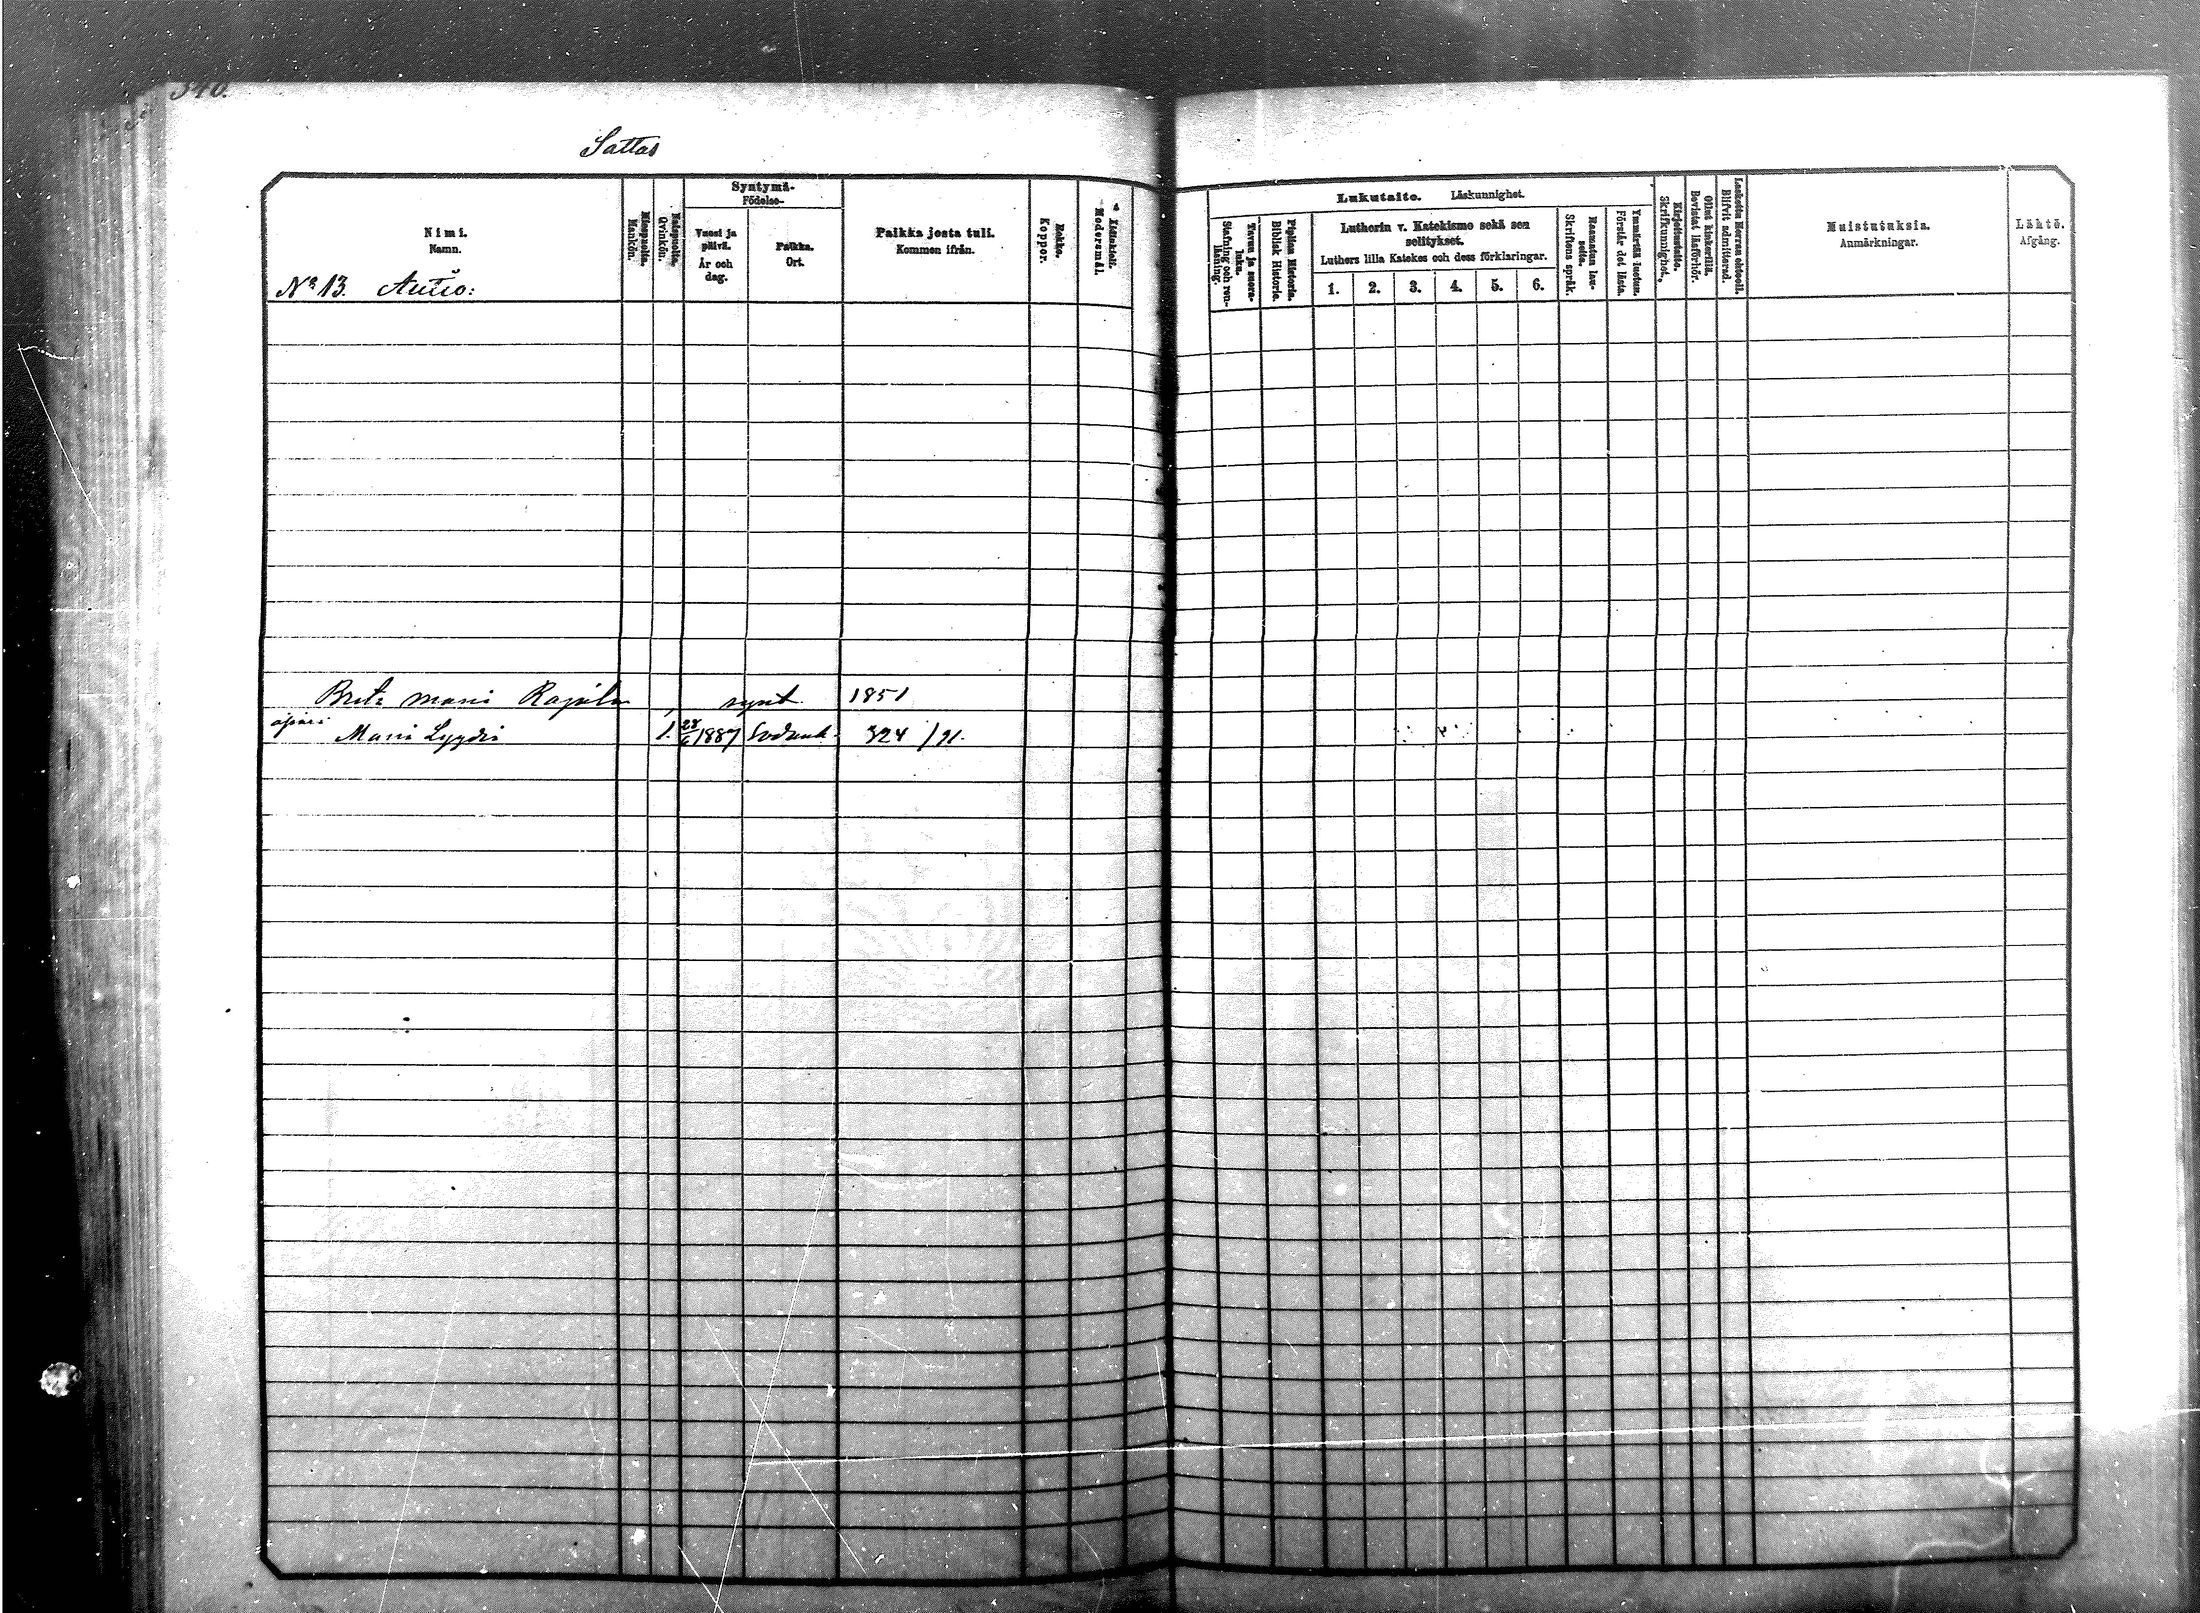 340.
Sattas
Nimi.
Namn.
Miespuolia.
Mankön.
Naispuolia.
Qvinkön.
Syntymä-
Födelse-
Vuosi ja
päivä.
År och
dag.
Paikka.
Ort.
Paikka josta tuli.
Kommen ifrån.
Rokko.
Koppor.
Äidinkieli.
Modersmål.
Lukutaito. Läskunnighet.
Tavuu ja suora-
luku.
Stafning och ren-
läsning.
Piplian Historia.
Biblisk Historie.
Lutherin v. Katekismo sekä sen
selitykset.
Luthers lilla Katekes och dess förklaringar.
1. 2. 3. 4. 5. 6.
Raamatun lau-
seita.
Skriftens språk.
Ymmärtää luetun.
Förstår det lästa.
Kirjoitustaito.
Skrifkunnighet.
Ollut kinkerillä.
Bevistat läsförhör.
Laskettu Herran ehtool.
Blifvit admitterad.
Muistutuksia.
Anmärkningar.
Lähtö.
Afgång.
No 13. Autio:
Brita Maria Rajala synt. 1851
äpärä
Maria Lyydia 1. 28/6 1887 Sodank. 324 /91.